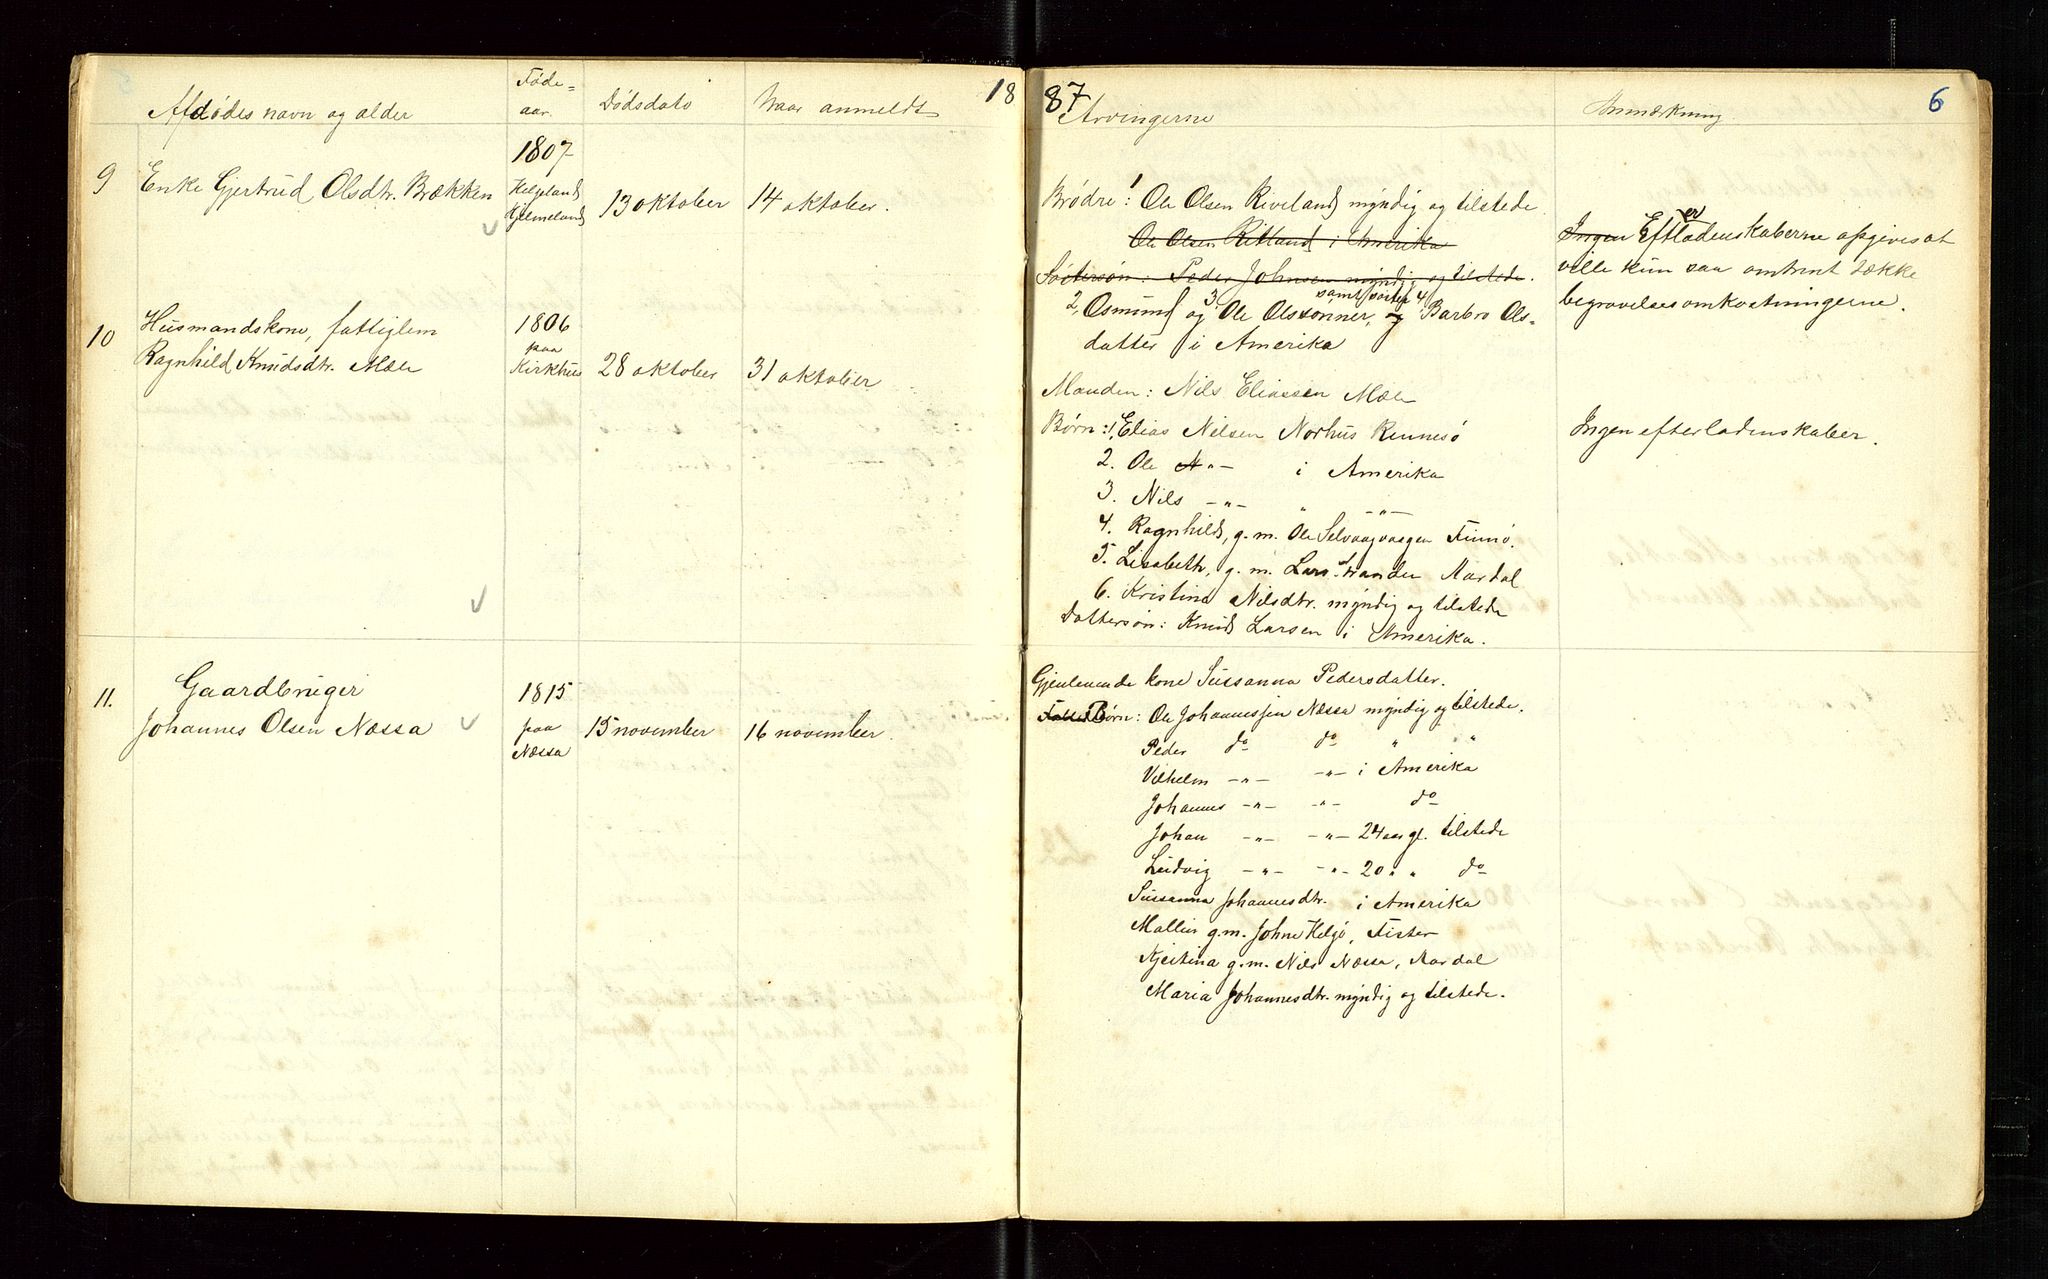 Afdødes navn og alder
Føde-
aar.
Dødsdato
Naar anmeldt
1887
Arvingerne
Anmærkning
6
9
Enke Gjertrud Olsdtr. Brækken
1807
Helgeland
Hjelmeland
13 oktober
14 oktober.
Brødre: 1 Ole Olsen Riveland myndig og tilstede
Ole Olsen Ritland i Amerika
Søstersøn: Peder Johnsen myndig og tilstede.
samt søster
2, Osmund og 3 Ole Olssønner, og 4 Barbro Ols-
datter i Amerika
Ingen Efterladenskaberne opgives at
ville kun saa omtrent dække
begravelsesomkostningerne.
10
Husmandskone, fattiglem
Ragnhild Knudsdtr. Mæle
1806
paa
Kirkhus
28 oktober
31 oktober
Manden: Nils Eliassen Mæle
Børn: 1, Elias Nilsen Norhus Rennesø
2. Ole N -"- i Amerika
3. Nils -"- " -"-
4. Ragnhild, g. m. Ole Selvaagvaagen Finnø.
5. Lisabeth, g. m. Lars Stranden Aardal
6. Kristina Nilsdtr. myndig og tilstede
Dattersøn: Knud Larsen i Amerika.
Ingen efterladenskaber.
11.
Gaardbruger
Johannes Olsen Næssa
1815
paa
Næssa
15 november
16 november.
Gjenlevende kone Sussanna Pedersdatter.
Børn: Ole Johannessen Næssa myndig og tilstede.
Peder do do " "
Vilhelm -"- -"- i Amerika
Johannes -"- -"- do
Johan -"- -"- 24 aar gl. tilstede
Ludvig -"- -"- 20 " " do
Sussanna Johannesdtr. i Amerika
Mallin g.m. Johne Helgø, Fister
Kjestina g.m. Nils Næssa, Aardal
Maria Johannesdtr. myndig og tilstede.